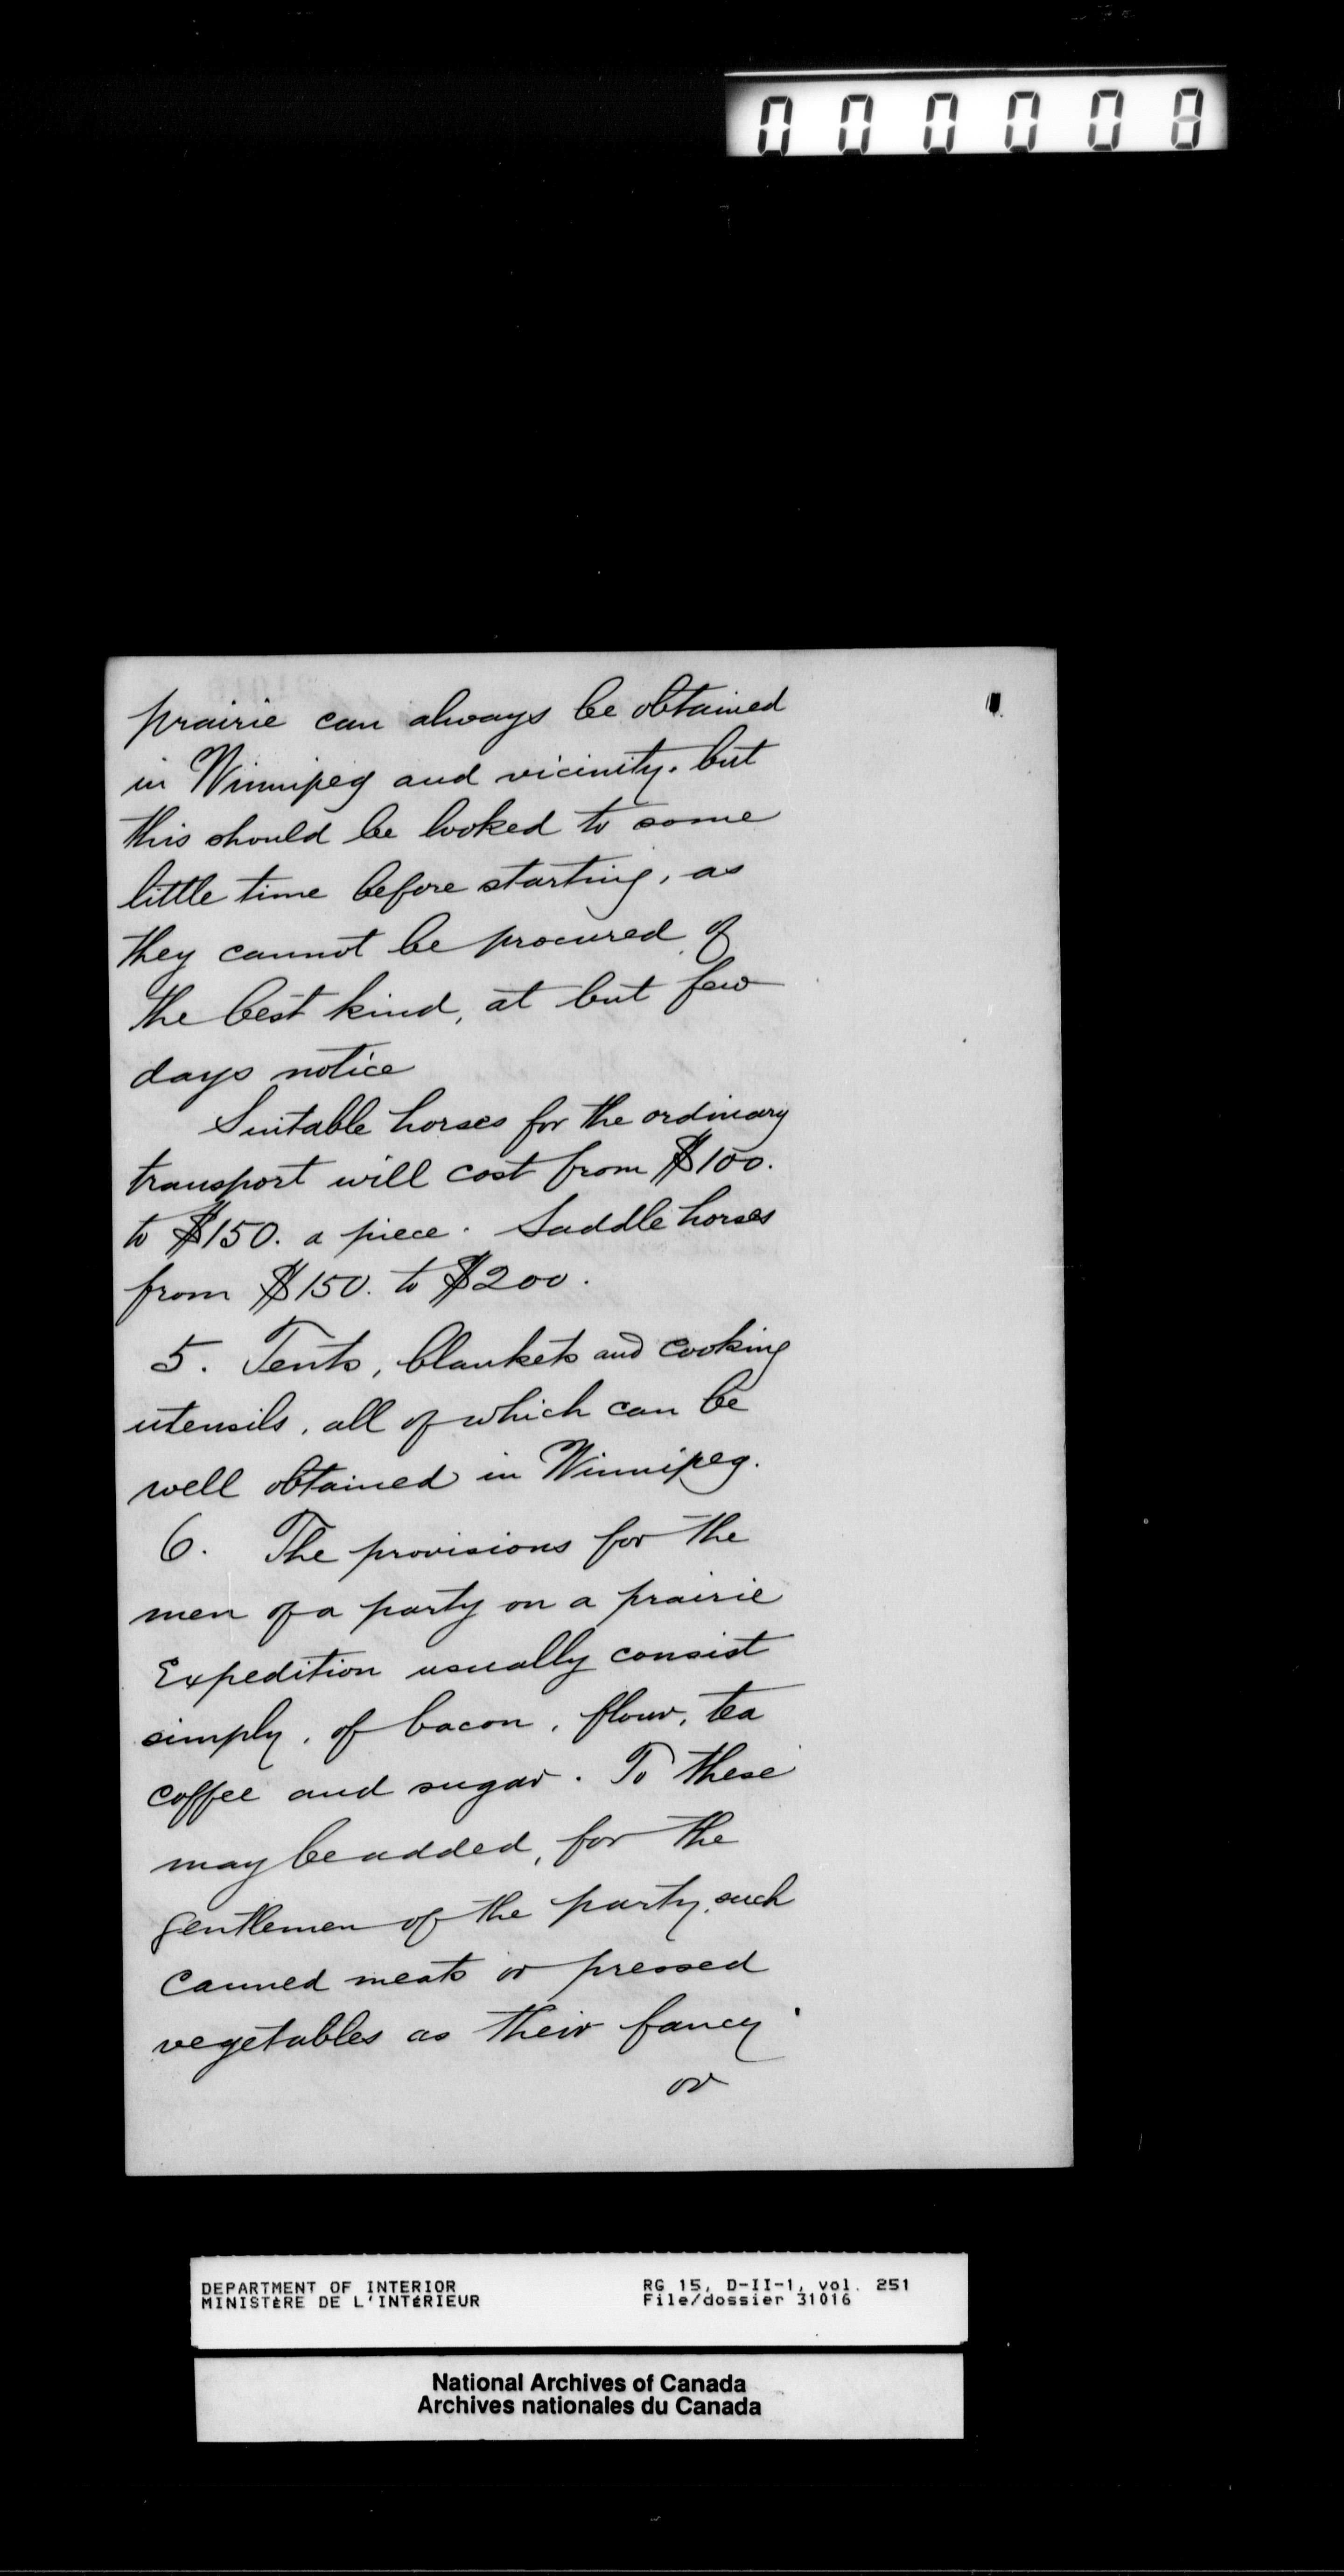 000008
prairie can always be obtained
in Winnipeg and vicinity. but
this should be looked to some
little time before starting, as
they cannot be procured of
the best kind, at but few
days notice
Suitable horses for the ordinary
transport will cost from $100.
to $150. a piece. Saddle horses
from $150. to $200.
5. Tents, blankets and cooking
utensils, all of which can be
well obtained in Winnipeg.
6. The provisions for the
men of a party on a prairie
Expedition usually consist
simply, of bacon, flour, tea
coffee and sugar. To these
may be added, for the
gentlemen of the party, such
canned meats or pressed
vegetables as their fancy
or
DEPARTMENT OF INTERIOR RG 15, D-II-1, vol. 251
MINISTÈRE DE L'INTÉRIEUR File/dossier 31016
National Archives of Canada
Archives nationales du Canada